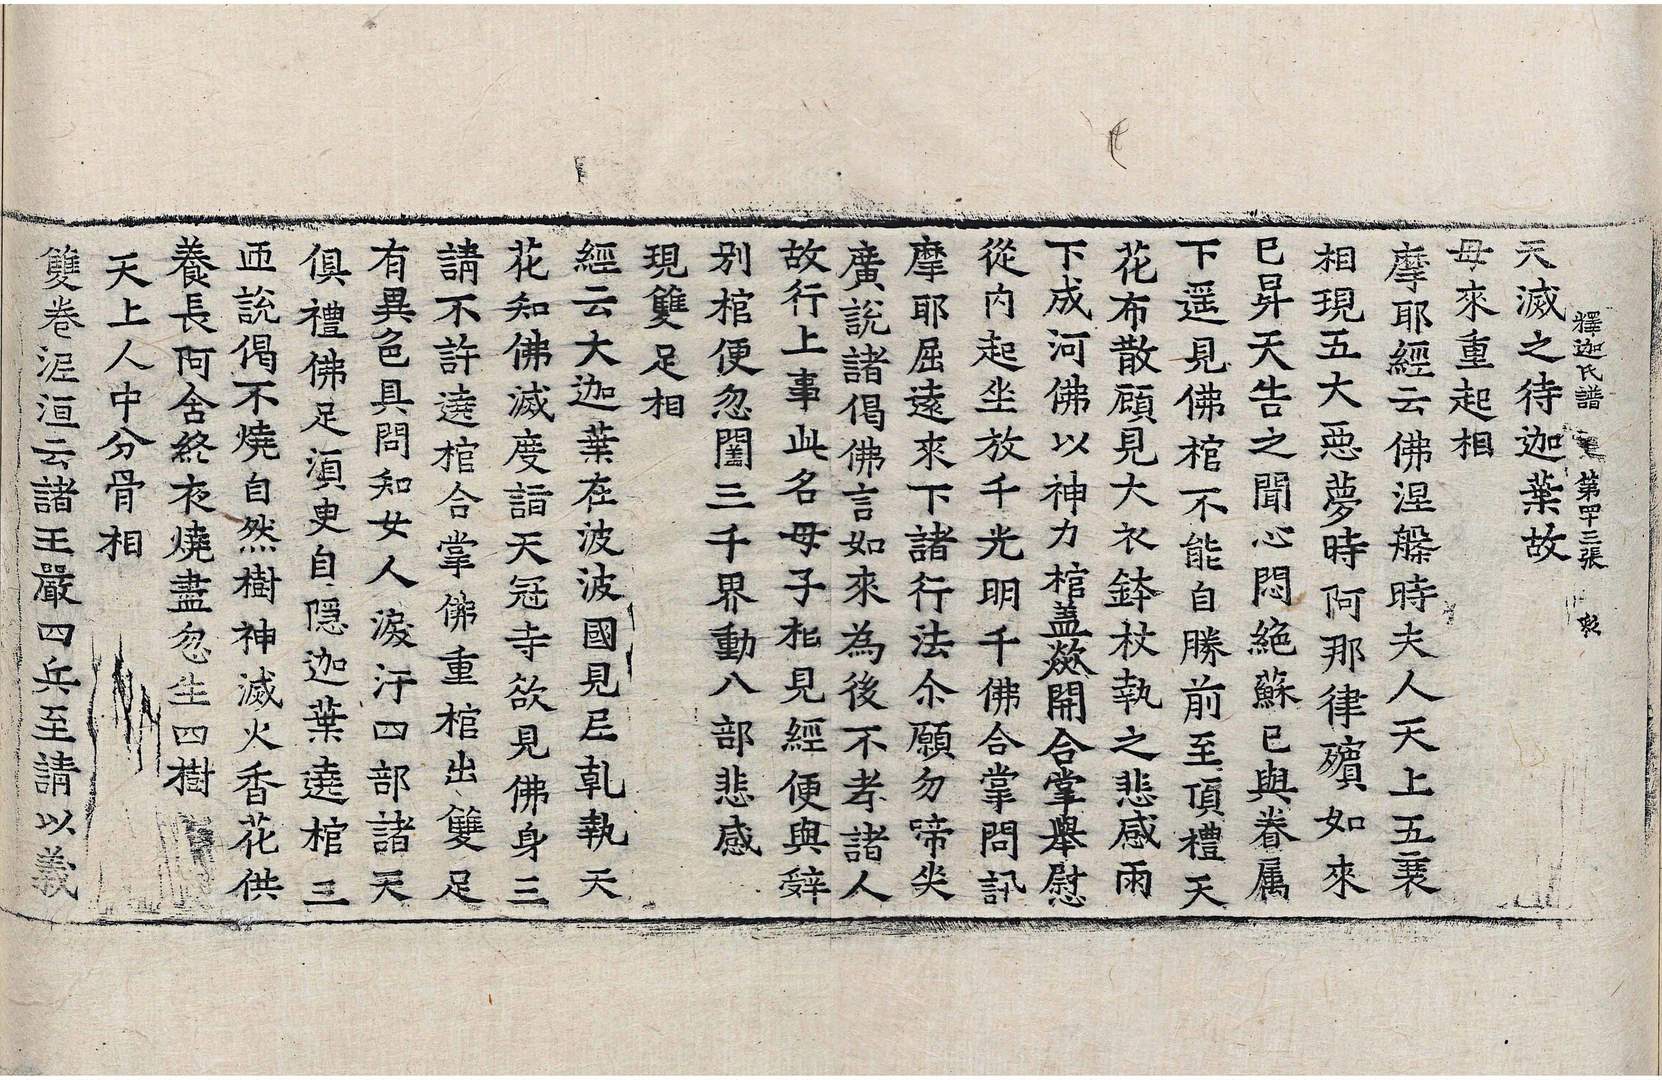 釋迦氏譜 第四十三張
天滅之待迦葉故
母來重起相
摩耶經云佛涅槃時夫人天上五衰
相現五大惡夢時阿那律殯如來
已昇天告之聞心悶絶蘇已與眷属
下遥見佛棺不能自勝前至頂禮天
花布散顧見大衣鉢杖執之悲感雨
下成河佛以神力棺盖㷿開合掌舉慰
從内起坐放千光明千佛合掌問訊
摩耶屈遠來下諸行法尒願勿啼哭
廣說諸偈佛言如來為後不孝諸人
故行上事此名母子相見經便與辝
别棺便忽闔三千界動八部悲感
現雙足相
經云大迦葉在波波國見尼軋執天
花知佛滅度詣天冠寺欲見佛身三
請不許遶棺合掌佛重棺出雙足
有異色具問知女人淚汙四部諸天
俱禮佛足湏臾自隱迦葉遶棺三
迊說偈不燒自然樹神滅火香花供
養長阿含終夜燒盡忽生四樹
天上人中分骨相
雙卷泥洹云諸王嚴四兵至請以義